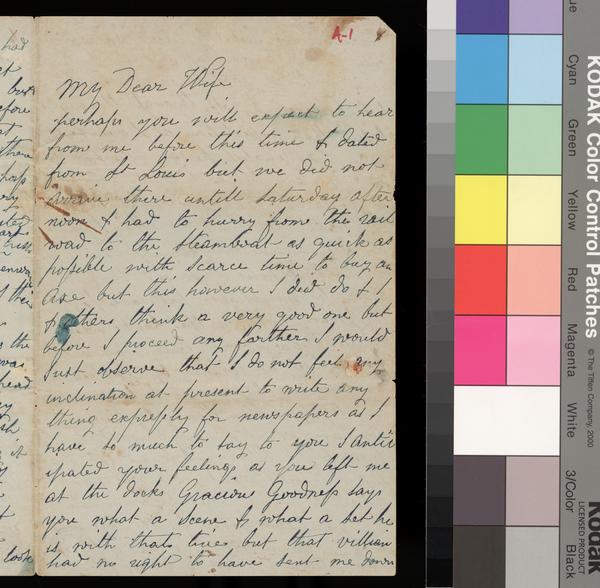 A-1
My Dear Wife
perhaps you will expect to hear
from me before this time & dated
from St Louis but we did not
arrive there untill Saturday after
noon & had to hurry from the rail
road to the Steamboat as quick as
possible with scarce time to buy an
axe but this however I did do & I
& others think a very good one but
before I proceed any farther I would
Just observe that I do not feel any
inclination at present to write any
thing expressly for newspapers as I
have so much to say to you I antic
ipated your feelings as you left me
at the docks Gracious Goodness says
you what a scene & what a set he
is with thats true but that villian
had no right to have sent me down
had
but
before
at
there
the
was
head
it
look
KODAK Color Control Patches
© The Tiffen Company, 2000
Kodak
LICENSED PRODUCT
ue
Cyan
Green
Yellow
Red
Magenta
White
3/Color
Black